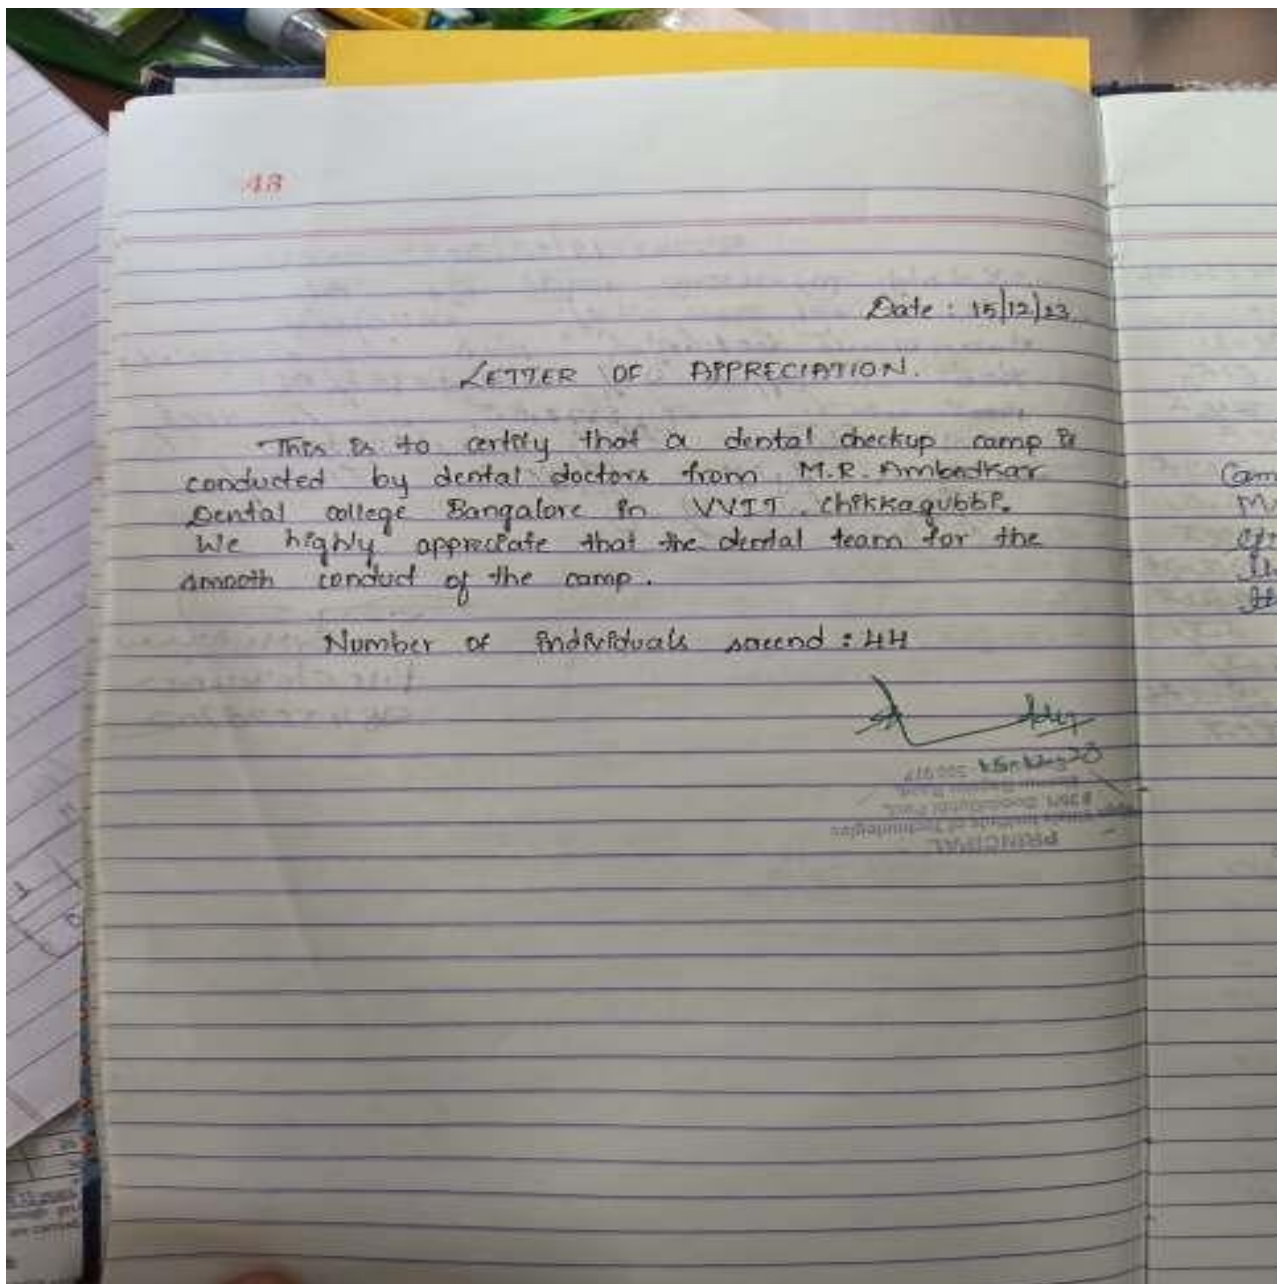 48
Date : 15/12/23
LETTER OF APPRECIATION.
This is to certify that a dental checkup camp is
conducted by dental doctors from M.R. Ambedkar
Dental college Bangalore in VVIT, Chikkagubbi.
We highly appreciate that the dental team for the
smooth conduct of the camp.
Number of individuals screend : 44
PRINCIPAL
Institute of Technologies